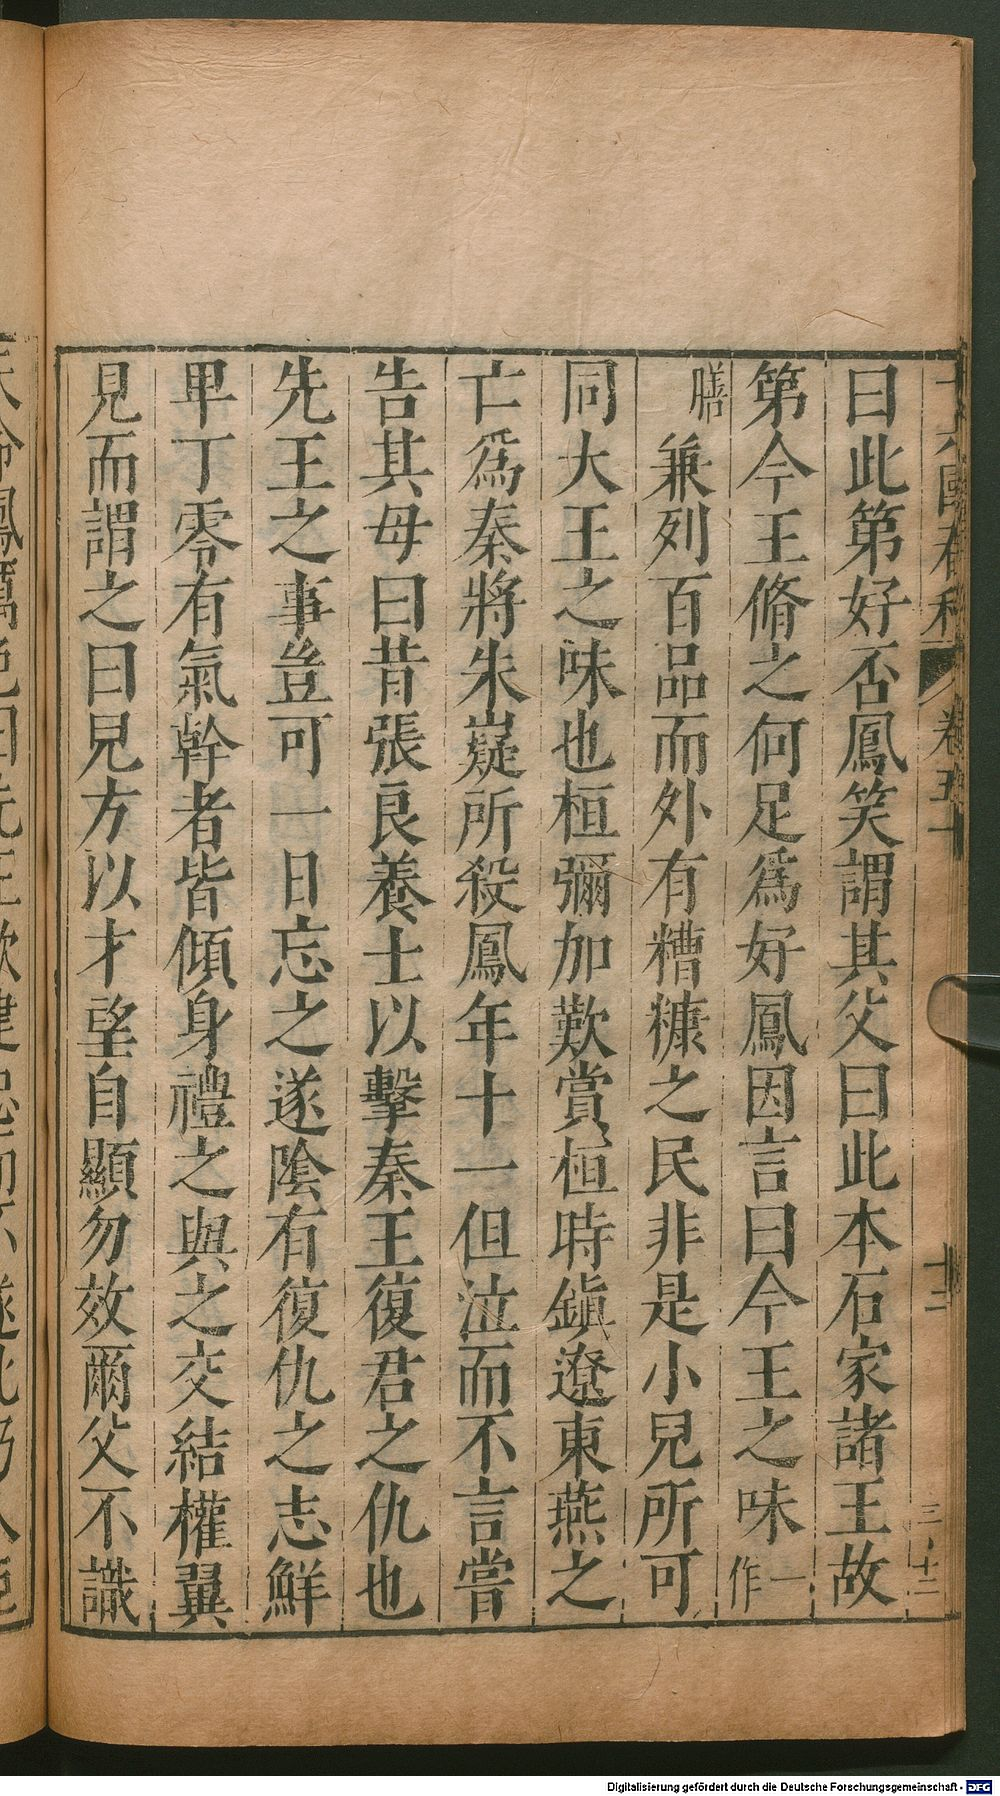 曰此第好否鳳笑謂其父曰此本石家諸王故
第今王脩之何足爲好鳳因言曰今王之味一作
膳兼列百品而外有糟糠之民非是小兒所可
同大王之味也桓彌加歎賞桓時鎮遼東燕之
亡爲秦將朱嶷所殺鳳年十一但泣而不言嘗
告其母曰昔張良養士以擊秦王復君之仇也
先王之事豈可一日忘之遂陰有復仇之志鮮
卑丁零有氣幹者皆傾身禮之與之交結權翼
見而謂之曰見方以才望自顯勿效爾父不識
十六國春秋 卷五十 十二
三·十二
Digitalisierung gefördert durch die Deutsche Forschungsgemeinschaft - DFG